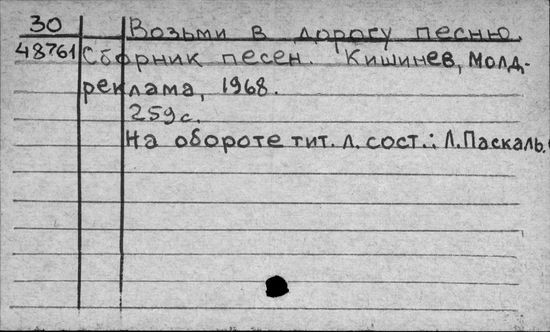 30 Возьми в дорогу песню.
48761 Сборник песен. Кишинев, Молд-
реклама, 1968.
259 с.
На обороте тит. л. сост.: Л. Паскаль.